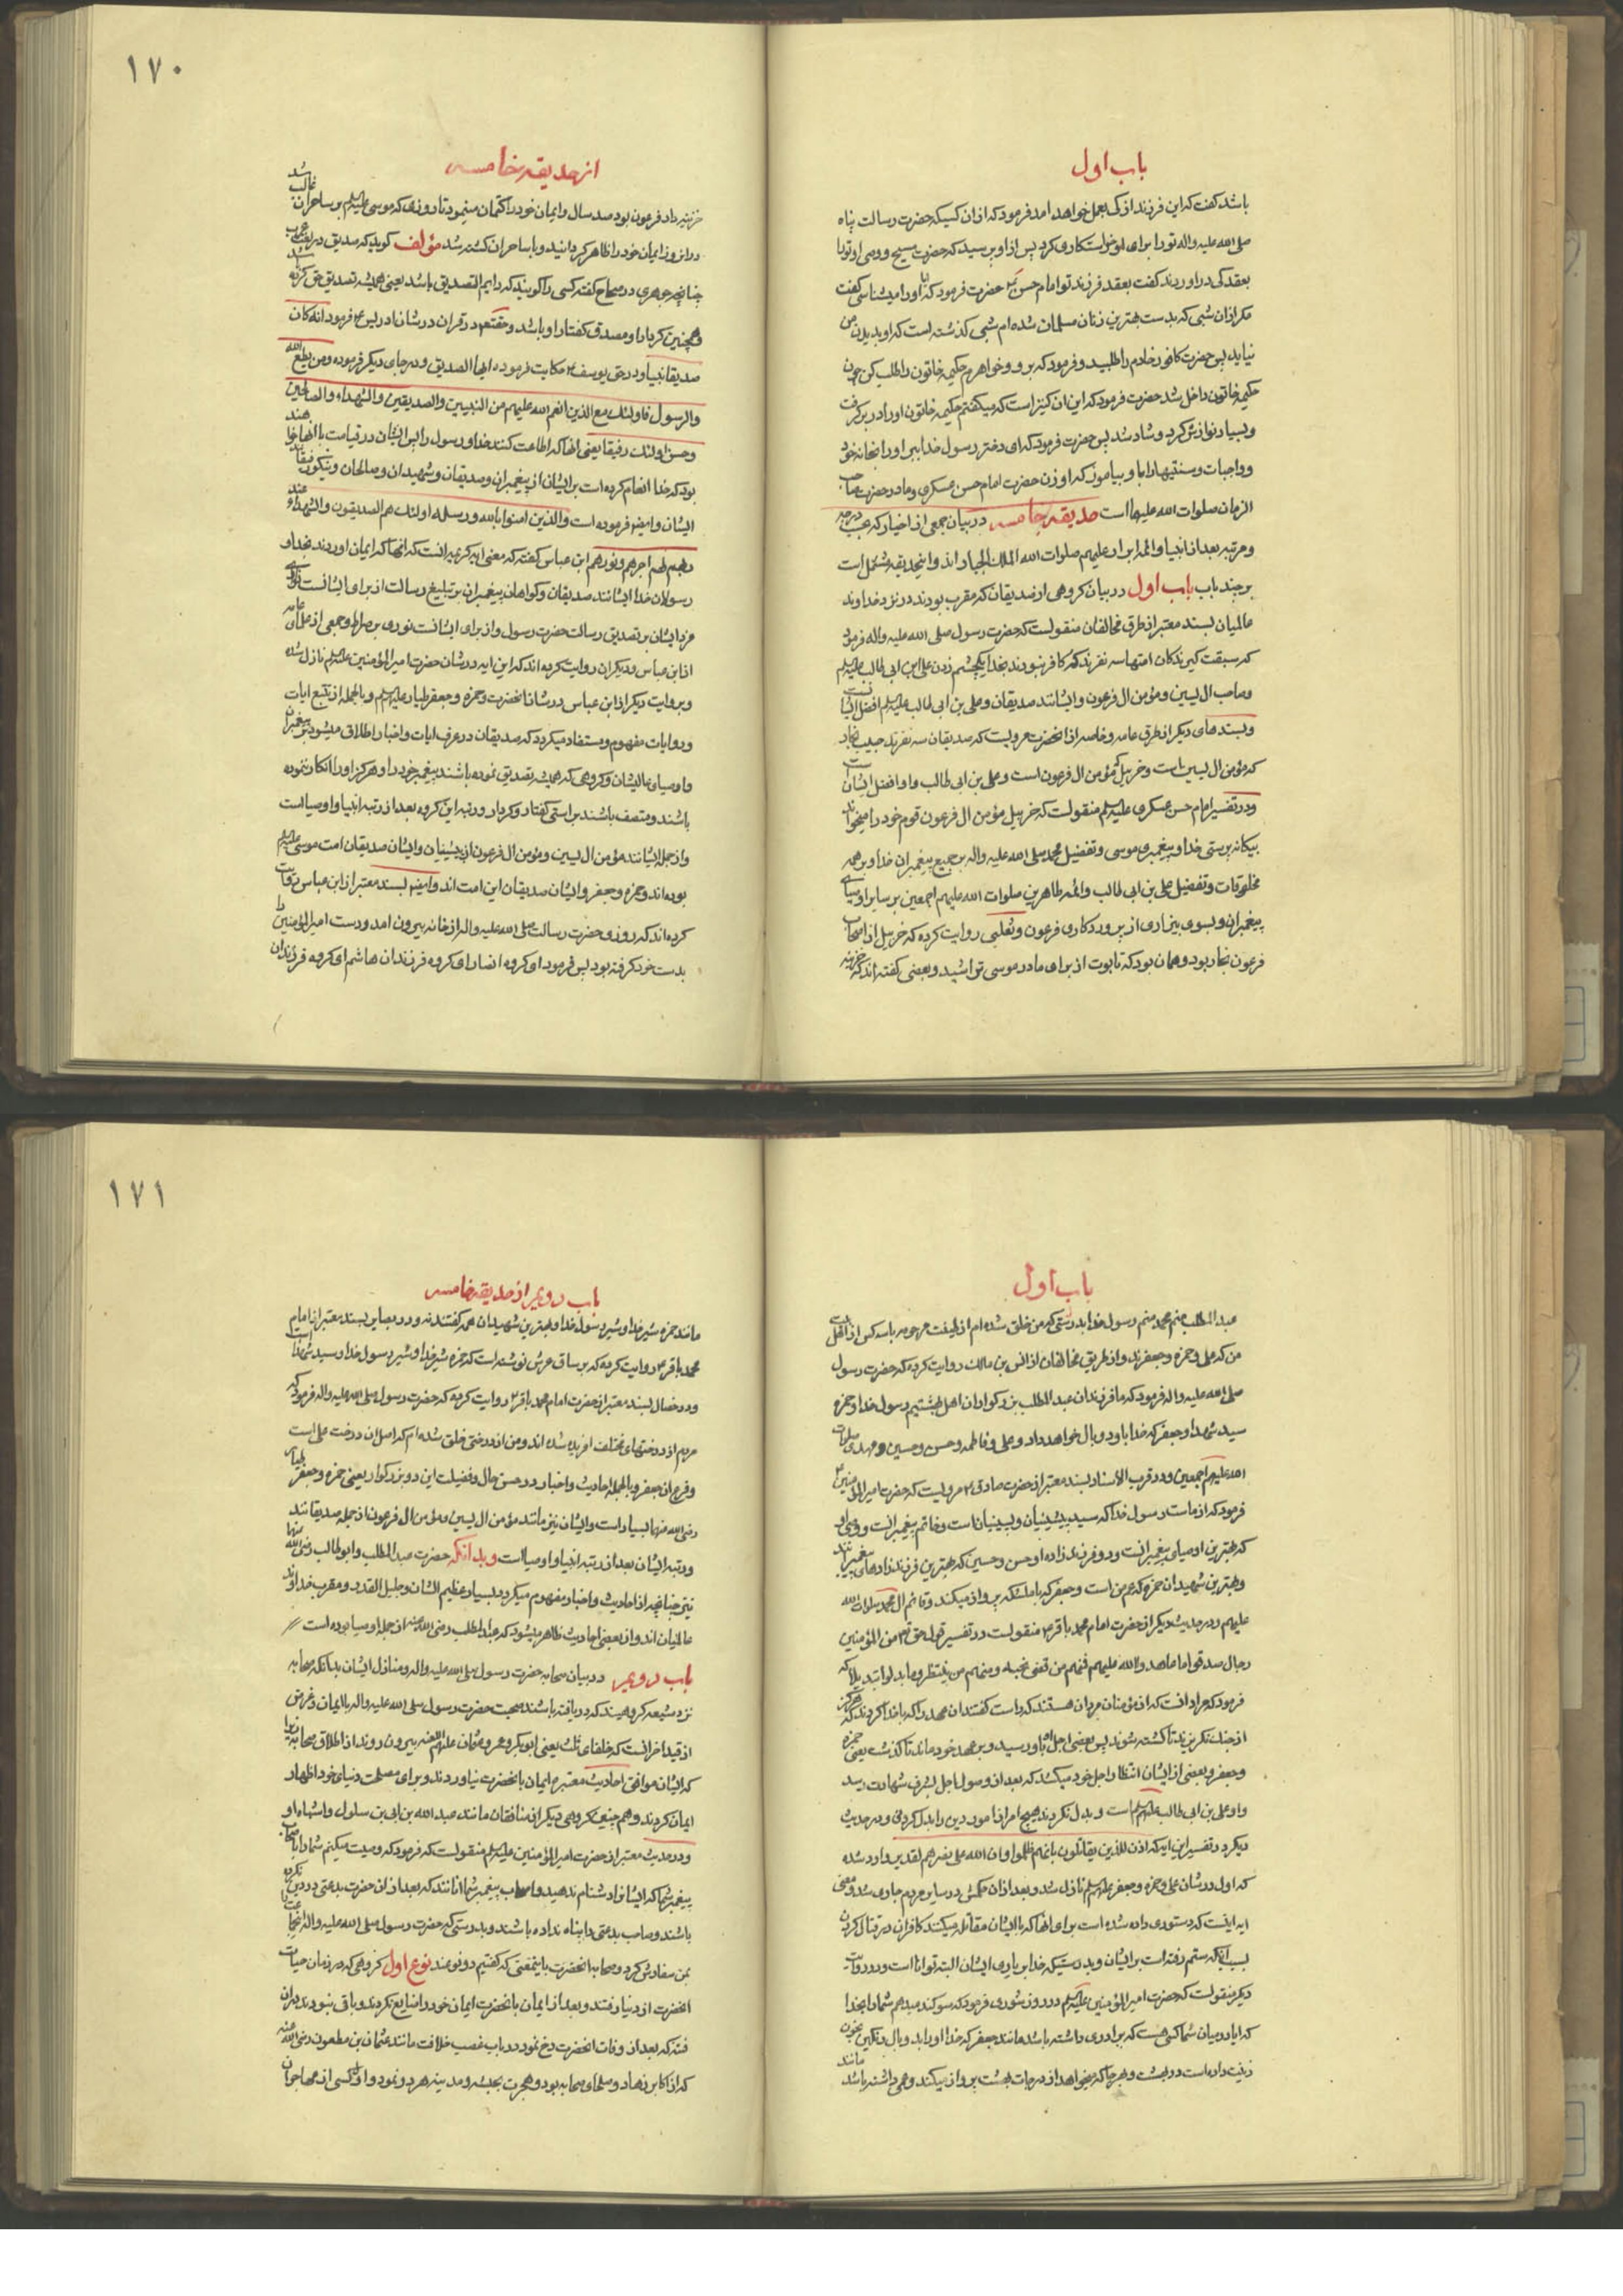 باب اول
باشد گفت که این فرزند از که بعمل خواهد آمد فرمود که از ان کسیکه حضرت رسالت پناه
صلی الله علیه واله تو را برای او خواستکاری کرد پس از او پرسید که حضرت مسیح و وصی او تو را
بعقد کی در اوردند گفت بعقد فرزند تو امام حسن ع حضرت فرمود که ایا او را میشناسی گفت
مکر ازان شبی که بدست بهترین زنان مسلمان شده ام شبی کذشته است که او بدیدن من
نیاید پس حضرت کافور خادم را طلبید و فرمود که برو و خواهرم حکیمه خاتون را طلب کن چون
حکیمه خاتون داخل شد حضرت فرمود که این ان کنیز است که میکفتم حکیمه خاتون او را در بر کرفت
و بسیار نوازش کرد و شاد شد پس حضرت فرمود که ای دختر رسول خدا ببر او را بخانه خود
و واجبات و سنتیها را باو بیاموز که او زن حضرت امام حسن عسکری و مادر حضرت صاحب
الزمان صلوات الله علیها است حدیقه خامسه در بیان جمعی از اخیار که بحسب درجه
و مرتبه بعد از انبیا و ائمه ابرار علیهم صلوات الله الملک الجبار اند و اینحدیقه مشتمل است
بر چند باب باب اول در بیان کروهی از صدیقان که مقرب بودند در نزد خداوند
عالمیان بسند معتبر از طرق مخالفان منقولست که حضرت رسول صلی الله علیه واله فرمود
که سبقت کیرندکان امتها سه نفرند که کافر نبودند بخدا یکچشم زدن علی ابن ابی طالب علیه السلم
و صاحب ال یسین و مؤمن ال فرعون و ایشانند صدیقان و علی بن ابی طالب علیه السلم افضل ایشانست
و بسندهای دیکر از طرق عامه و خاصه از انحضرت مرویست که صدیقان سه نفرند حبیب نجار
که مؤمن ال یسین است و خربیل که مؤمن ال فرعون است و علی بن ابی طالب و او افضل ایشان است
و در تفسیر امام حسن عسکری علیه السلم منقولست که خربیل مؤمن ال فرعون قوم خود را میخواند
بیکانه پرستی خدا و پیغمبری موسی و تفضیل محمد صلی الله علیه واله بر جمیع پیغمبران خدا و بر همه
مخلوقات و تفضیل علی بن ابی طالب و ائمه طاهرین صلوات الله علیهم اجمعین بر سایر اوصیای
پیغمبران و بسوی بیزاری از پروردکاری فرعون و ثعلبی روایت کرده که خربیل از اصحاب
فرعون نجار بود و همان بود که تابوت از برای مادر موسی تراشید و بعضی کفته اند که خزینه
۱۷۰
از حدیقه خامسه
خزینه دار فرعون بود صد سال و ایمان خود را کتمان مینمود تا روزی که موسی علیه السلم بر ساحران غالب شد
در انروز ایمان خود را ظاهر کردانید و با ساحران کشته شد مؤلف کوید که صدیق در لغت عرب
چنانچه جوهری در صحاح کفته کسی را کویند که دایم التصدیق باشد یعنی همیشه تصدیق حق کرده
و همچنین کردار او مصدق کفتار او باشد و حقتعم در قران در شان ادریس ع فرمود انه کان
صدیقا نبیا و در حق یوسف ع حکایت فرموده ایها الصدیق و در جای دیکر فرموده ومن یطع الله
والرسول فاولئک مع الذین انعم الله علیهم من النبیین والصدیقین والشهداء والصالحین
وحسن اولئک رفیقا یعنی انها که اطاعت کنند خدا و رسول را پس ایشان در قیامت با انها خواهند
بود که خدا انعام کرده است بر ایشان از پیغمبران و صدیقان و شهیدان و صالحان و نیکو رفیقانند
ایشان و ایضم فرموده است والذین امنوا بالله ورسله اولئک هم الصدیقون والشهداء عند
ربهم لهم اجرهم ونورهم ابن عباس کفته که معنی ایه کریمه انست که انها که ایمان اوردند بخدا و
رسولان خدا ایشانند صدیقان و کواهان پیغمبران بر تبلیغ رسالت از برای ایشانست ثواب
مزد ایشان بر تصدیق رسالت حضرت رسول و از برای ایشانست نوری بر صراط و جمعی از علمای عامه
از ابن عباس و دیکران روایت کرده اند که این ایه در شان حضرت امیر المؤمنین علیه السلم نازل شده
و بروایت دیکر از ابن عباس در شان انحضرت و حمزه و جعفر طیار علیهم السلم و بالجمله از تتبع ایات
و روایات مفهوم و مستفاد میکردد که صدیقان در عرف ایات و اخبار اطلاق میشود بر پیغمبران
و اوصیای عالیشان و کروهی که همیشه تصدیق نموده باشند پیغمبر خود را و هرکز او را انکار ننموده
باشند و متصف باشند براستی کفتار و کردار و رتبه این کروه بعد از رتبه انبیا و اوصیا است
و از جمله ایشانند مؤمن ال یسین و مؤمن ال فرعون از پیشینیان و ایشان صدیقان امت موسی علیه السلم
بوده اند و حمزه و جعفر و ایشان صدیقان این امت اند و ایضم بسند معتبر از ابن عباس روایت
کرده اند که روزی حضرت رسالت صلی الله علیه واله از خانه بیرون امد و دست امیر المؤمنین را
بدست خود کرفته بود پس فرمود ای کروه انصار ای کروه فرزندان هاشم ای کروه فرزندان
باب اول
عبد المطلب منم محمد منم رسول خدا بدرستی که من خلق شده ام از طینت مرحومه با سه کس از اهل بیت
من که علی و حمزه و جعفرند و از طریق مخالفان از انس بن مالک روایت کرده که حضرت رسول
صلی الله علیه واله فرمود که ما فرزندان عبد المطلب بزرکواران اهل بهشتیم رسول خدا و حمزه
سید شهدا و جعفر که خدا باو دو بال خواهد داد و علی و فاطمه و حسن و حسین و مهدی صلوات
الله علیهم اجمعین و در قرب الاسناد بسند معتبر از حضرت صادق ع مرویست که حضرت امیر المؤمنین ع
فرمود که از ماست رسول خدا که سید پیشینیان و پسینیان است و خاتم پیغمبرانست و وصی او
که بهترین اوصیای پیغمبرانست و دو فرزند زاده او حسن و حسین که بهترین فرزند زادهای پیغمبرانند
و بهترین شهیدان حمزه که عم من است و جعفر که با ملئکه پرواز میکند و قائم ال محمد صلوات الله
علیهم و در حدیث دیکر از حضرت امام محمد باقر ع منقولست در تفسیر قول حق تعم من المؤمنین
رجال صدقوا ما عاهدوا الله علیهم فمنهم من قضی نحبه و منهم من ینتظر وما بدلوا تبدیلا که
فرمود که مراد انست که از مؤمنان مردان هستند که راست کفتند ان عهد را که با خدا کردند که هرکز
از جنک نکریزند تا کشته شوند پس بعضی اجل باو رسید و بر عهد خود ماند تا کذشت یعنی حمزه
و جعفر و بعضی از ایشان انتظار اجل خود میکشد که بعد از وصول اجل بشرف شهادت رسد
و او علی بن ابی طالب علیه السلم است و بدل نکردند هیچ امر از امور دین را بدل کردنی و در حدیث
دیکر در تفسیر این ایه که اذن للذین یقاتلون بانهم ظلموا وان الله علی نصرهم لقدیر وارد شده
که اول در شان علی و حمزه و جعفر علیهم السلم نازل شد و بعد از ان حکمش در سایر مردم جاری شد و معنی
ایه اینست که دستوری داده شده است برای انها که با ایشان مقاتله میکنند کافران در قتال کردن
بسبب اینکه ستم رفته است بر ایشان و بدرستیکه خدا بر یاری ایشان البته توانا است و در روایت
دیکر منقولست که حضرت امیر المؤمنین علیه السلم در روز شوری فرمود که سوکند میدهم شما را بخدا
که ایا در میان شما کسی هست که برادری داشته باشد مانند جعفر که خدا او را بدو بال رنکین بخون
زینت داده است در بهشت و بهر جا که میخواهد از درجات بهشت پرواز میکند و عمی داشته باشد مانند
۱۷۱
باب دویم از حدیقه خامسه
مانند حمزه شیر خدا و شیر رسول خدا و بهترین شهیدان همه کفتند نه و در بصایر بسند معتبر از امام
محمد باقر ع روایت کرده که بر ساق عرش نوشته است که حمزه شیر خدا و شیر رسول خدا و سید شهدا است
و در خصال بسند معتبر از حضرت امام محمد باقر ع روایت کرده که حضرت رسول صلی الله علیه واله فرمود که
مردم از درختهای مختلف افریده شده اند و من از درختی خلق شده ام که اصل ان درخت علی است
و فرع ان جعفر و بالجمله احادیث و اخبار در حسن حال و فضیلت این دو بزرکوار یعنی حمزه و جعفر طیار
رضی الله عنهما بسیار است و ایشان نیز مانند مؤمن ال یسین و مؤمن ال فرعون از جمله صدیقانند
و رتبه ایشان بعد از رتبه انبیا و اوصیا است و بدانکه حضرت عبد المطلب و ابو طالب رضی الله عنهما
نیز چنانچه از احادیث و اخبار مفهوم میکردد بسیار عظیم الشان و جلیل القدر و مقرب خداوند
عالمیان اند و از بعضی احادیث ظاهر میشود که عبد المطلب رضی الله عنه از جمله اوصیا بوده است
باب دویم در بیان صحابه حضرت رسول صلی الله علیه واله و منازل ایشان بدانکه صحابه
نزد شیعه کروهیند که دریافته باشند صحبت حضرت رسول صلی الله علیه واله با ایمان و غرض
از قید اخر انست که خلفای ثلث یعنی ابوبکر و عمر و عثمان علیهم اللعنه بیرون روند از اطلاق صحابه زیرا
که ایشان موافق احادیث معتبره ایمان بانحضرت نیاوردند و برای مصلحت دنیای خود اظهار
ایمان کردند و هم چنین کروهی دیکر از منافقان مانند عبد الله بن ابی بن سلول و اشباه او
و در حدیث معتبر از حضرت امیر المؤمنین علیه السلم منقولست که فرمود که وصیت میکنم شما را باصحاب
پیغمبر شما که ایشانرا دشنام ندهید و اصحاب پیغمبر شما انانند که بعد از ان حضرت بدعتی در دین نکرده
باشند و صاحب بدعتی را پناه نداده باشند و بدرستی که حضرت رسول صلی الله علیه واله این جماعت را
بمن سفارش کرد و صحابه انحضرت باینمعنی که کفتیم دو نوعند نوع اول کروهی که در زمان حیات
انحضرت از دنیا رفتند و بعد از ایمان بانحضرت ایمان خود را ضایع نکردند و باقی نبودند دران
فتنه که بعد از وفات انحضرت رخ نمود در باب غصب خلافت مانند عثمان بن مظعون رضی الله عنه
که از اکابر زهاد و علمای صحابه بود و هجرت بحبشه و مدینه هر دو نمود و اول کسی از مهاجران